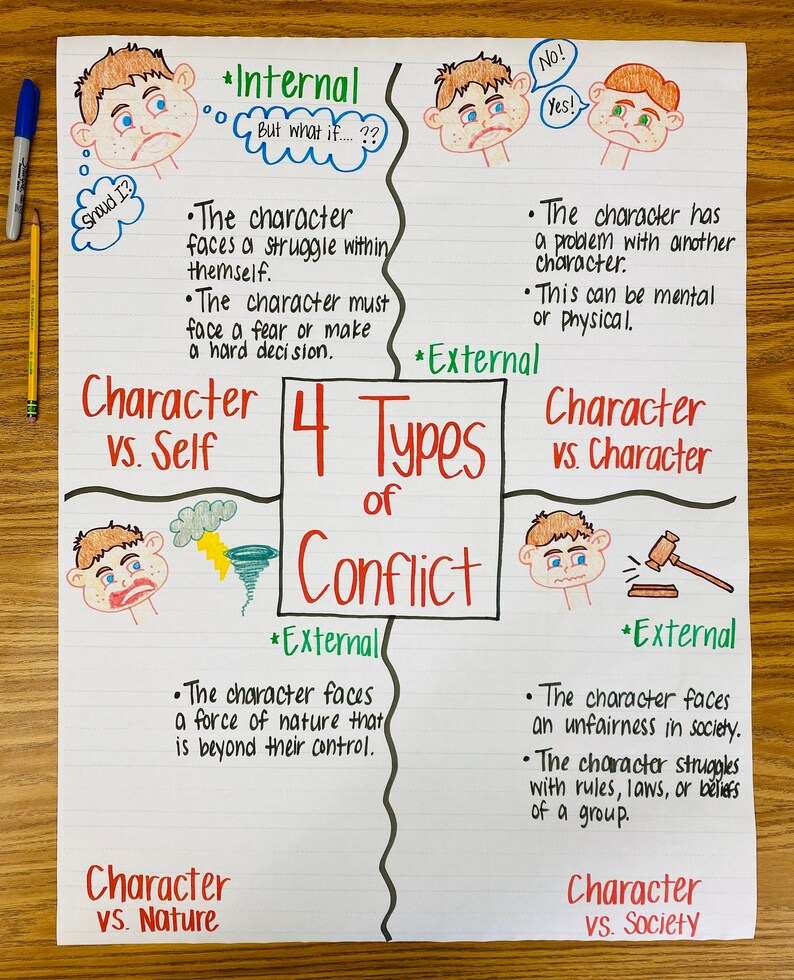 4 Types
of
Conflict
*Internal
But what if.... ??
Shoud I?
• The character
faces a struggle within
themself.
• The character must
face a fear or make
a hard decision.
Character
vs. Self
No!
Yes!
• The character has
a problem with another
character.
• This can be mental
or physical.
*External
Character
vs. Character
*External
• The character faces
a force of nature that
is beyond their control.
Character
vs. Nature
*External
• The character faces
an unfairness in society.
• The character struggles
with rules, laws, or beliefs
of a group.
Character
vs. Society